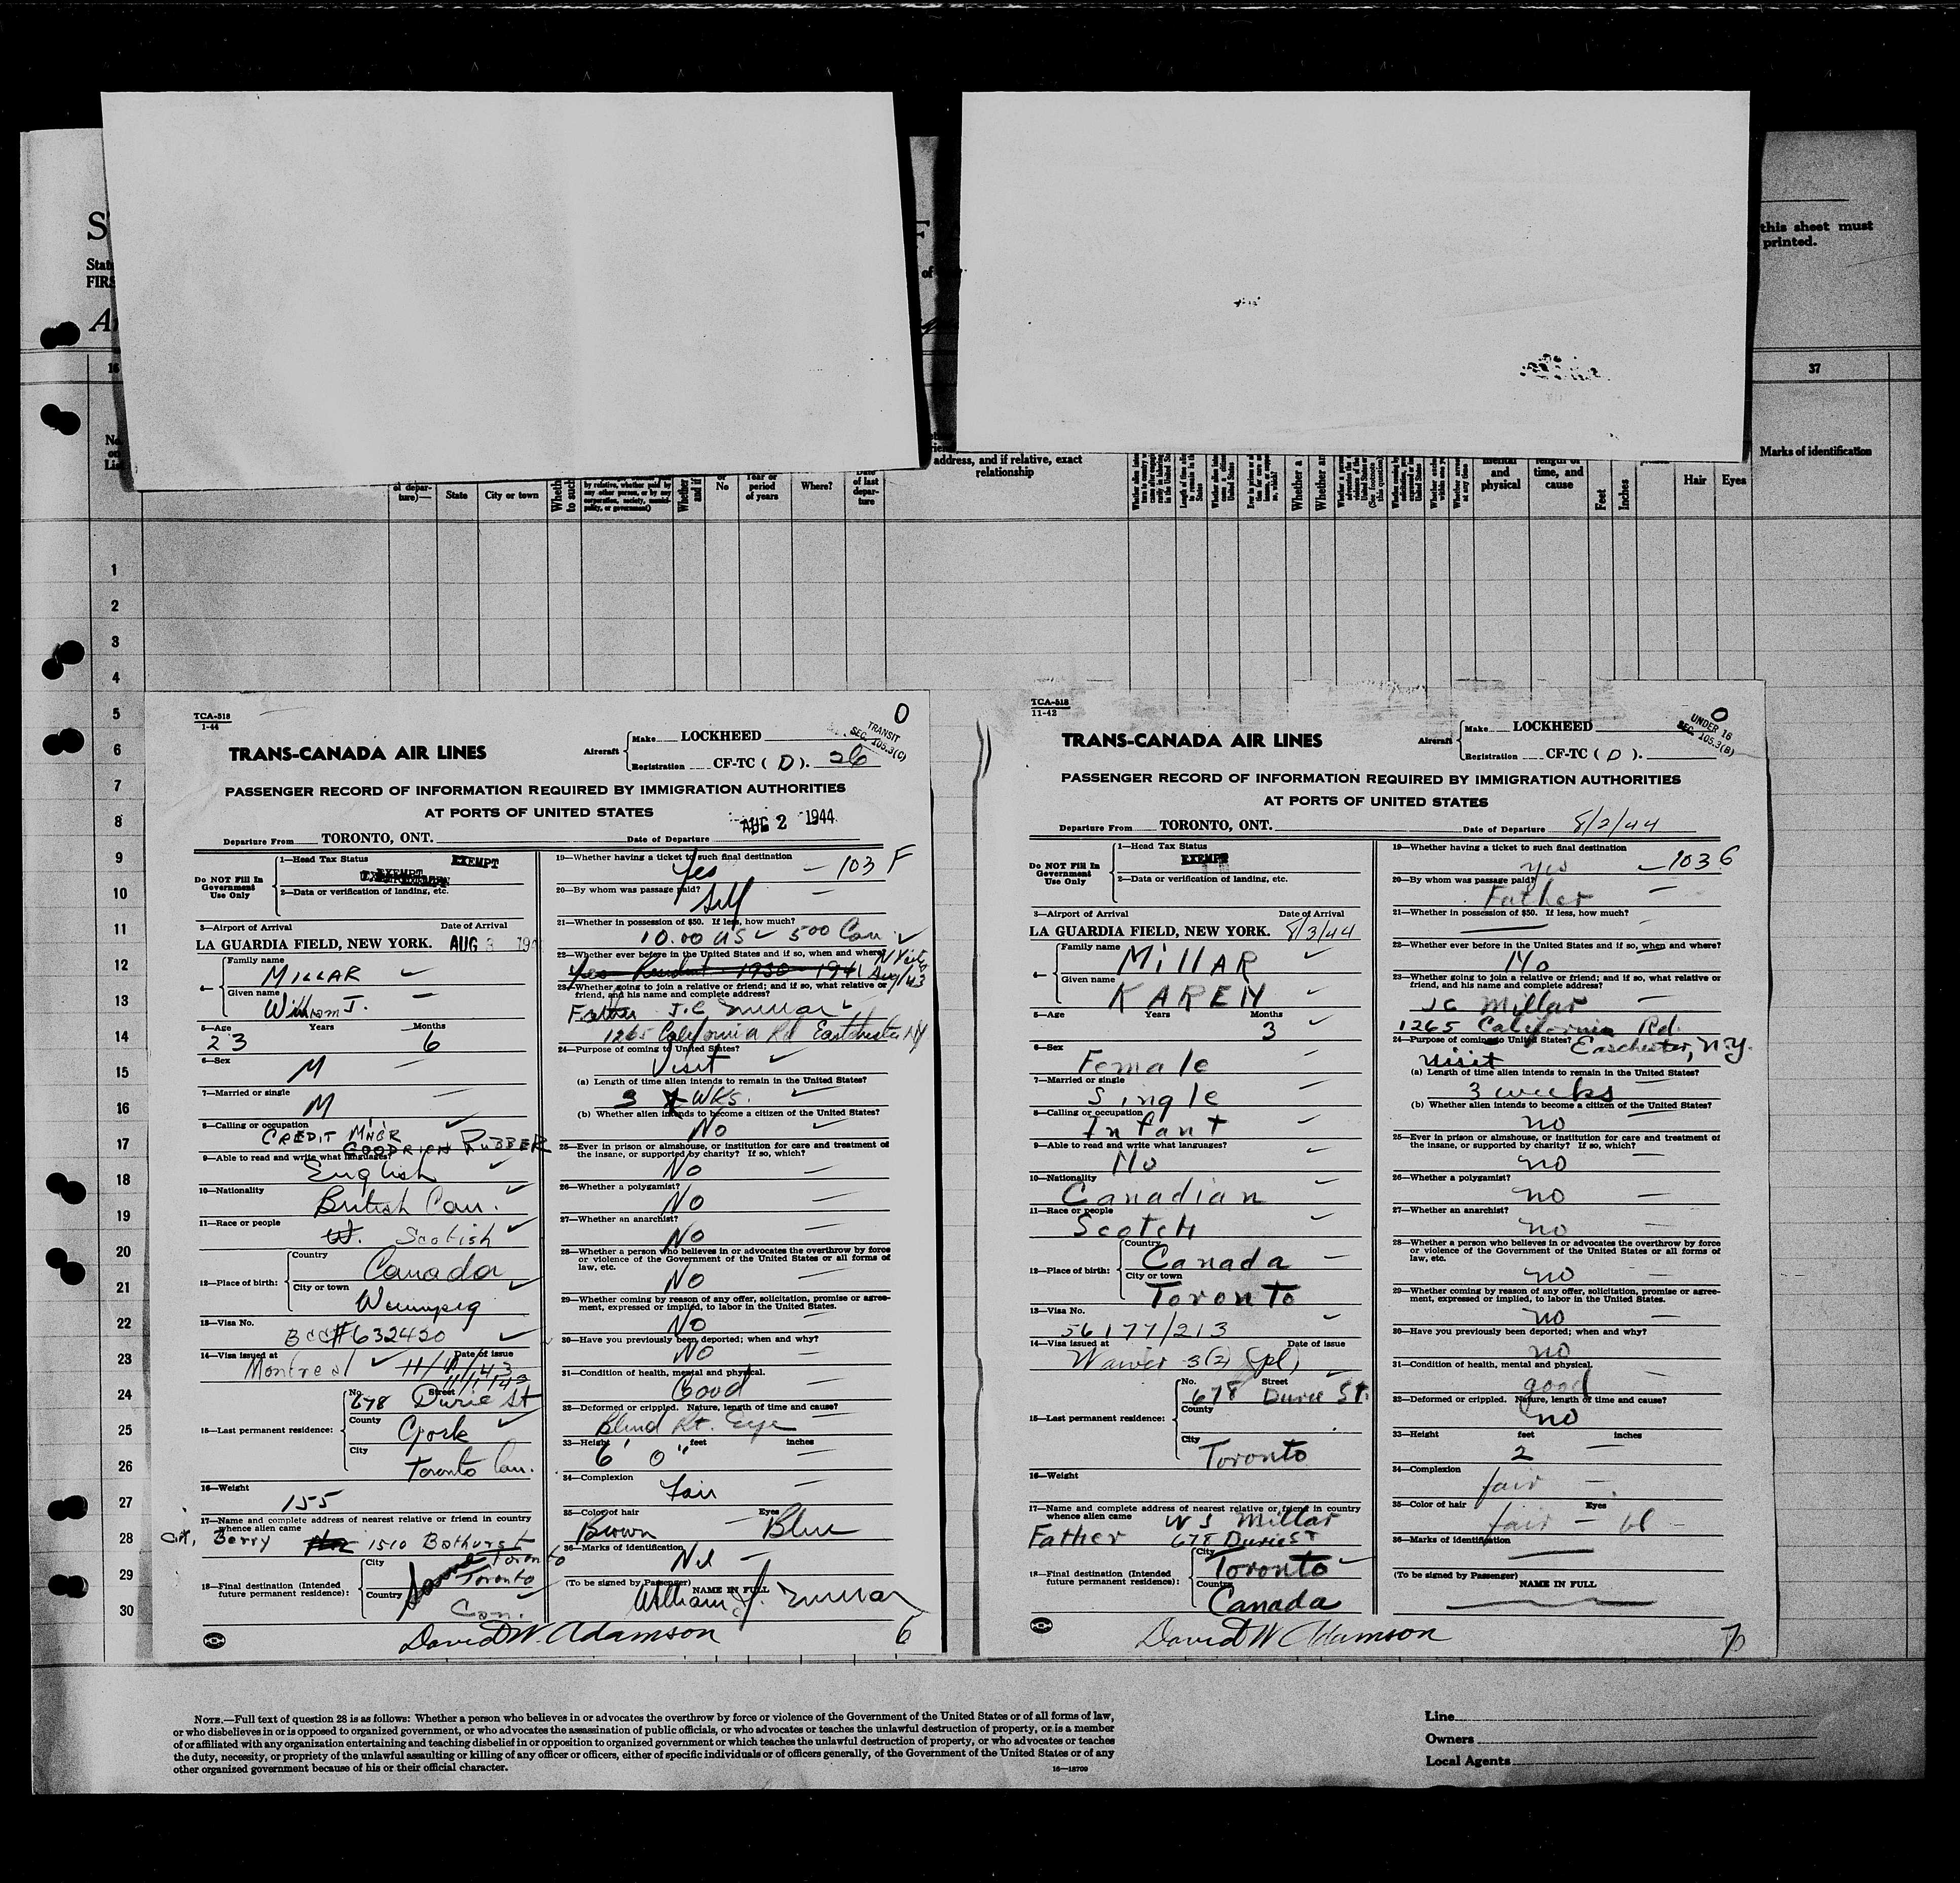 this sheet must
printed.
37
Marks of identification
address, and if relative, exact
relationship
State
City or town
No
Year or
period
of years
Where?
Date
of last
depar-
ture
mental
and
physical
time, and
cause
Feet
Inches
Hair
Eyes
1
2
3
4
5
6
7
8
9
10
11
12
13
14
15
16
17
18
19
20
21
22
23
24
25
26
27
28
29
30
TCA-518
1-44
O
TRANSIT
SEC. 105.3(C)
TRANS-CANADA AIR LINES
Aircraft
Make LOCKHEED
Registration CF-TC ( D ). 26
PASSENGER RECORD OF INFORMATION REQUIRED BY IMMIGRATION AUTHORITIES
AT PORTS OF UNITED STATES
AUG 2 1944
Departure From TORONTO, ONT. Date of Departure
Do NOT Fill In
Government
Use Only
1—Head Tax Status EXEMPT
2—Data or verification of landing, etc.
3—Airport of Arrival Date of Arrival
LA GUARDIA FIELD, NEW YORK. AUG 3 194
4—
Family name
MILLAR
Given name
William J.
5—Age Years Months
23 6
6—Sex
M
7—Married or single
M
8—Calling or occupation
CREDIT MNGR
GOODRICH RUBBER
9—Able to read and write what languages?
English
10—Nationality
British Can.
11—Race or people
Scotish
12—Place of birth:
Country
Canada
City or town
Winnipeg
13—Visa No.
BCC#632420
14—Visa issued at Date of issue
Montreal 11/11/43
11/11/43
15—Last permanent residence:
No. Street
678 Durie St
County
York
City
Toronto Can.
16—Weight
155
17—Name and complete address of nearest relative or friend in country
whence alien came
Berry 1510 Bathurst
Toronto
18—Final destination (Intended
future permanent residence):
City
Toronto
Country
Can.
19—Whether having a ticket to such final destination
Yes — 103 F
20—By whom was passage paid?
Self
21—Whether in possession of $50. If less, how much?
10.00 US 500 Can
22—Whether ever before in the United States and if so, when and where?
Yes Resident 1930 - 1941 Aug/43
23—Whether going to join a relative or friend; and if so, what relative or
friend, and his name and complete address?
Father J.C Millar
1265 California Rd Eastchester NY
24—Purpose of coming to United States?
Visit
(a) Length of time alien intends to remain in the United States?
3 WKS.
(b) Whether alien intends to become a citizen of the United States?
No
25—Ever in prison or almshouse, or institution for care and treatment of
the insane, or supported by charity? If so, which?
No
26—Whether a polygamist?
No
27—Whether an anarchist?
No
28—Whether a person who believes in or advocates the overthrow by force
or violence of the Government of the United States or all forms of
law, etc.
No
29—Whether coming by reason of any offer, solicitation, promise or agree-
ment, expressed or implied, to labor in the United States.
No
30—Have you previously been deported; when and why?
No
31—Condition of health, mental and physical.
Good
32—Deformed or crippled. Nature, length of time and cause?
Blind Rt. Eye
33—Height feet inches
6' 0"
34—Complexion
Fair
35—Color of hair Eyes
Brown — Blue
36—Marks of identification
Nil —
(To be signed by Passenger) NAME IN FULL
William J. Millar
David W. Adamson
6
TCA-518
11-42
O
UNDER 16
SEC. 105.3(B)
TRANS-CANADA AIR LINES
Aircraft
Make LOCKHEED
Registration CF-TC ( D ).
PASSENGER RECORD OF INFORMATION REQUIRED BY IMMIGRATION AUTHORITIES
AT PORTS OF UNITED STATES
Departure From TORONTO, ONT. Date of Departure 8/2/44
Do NOT Fill In
Government
Use Only
1—Head Tax Status
EXEMPT
2—Data or verification of landing, etc.
3—Airport of Arrival Date of Arrival
LA GUARDIA FIELD, NEW YORK. 8/3/44
4—
Family name
MillAR
Given name
KAREN
5—Age Years Months
3
6—Sex
Female
7—Married or single
Single
8—Calling or occupation
Infant
9—Able to read and write what languages?
No
10—Nationality
Canadian
11—Race or people
Scotch
12—Place of birth:
Country
Canada
City or town
Toronto
13—Visa No.
56177/213
14—Visa issued at Date of issue
Waiver 3(2) (pl)
15—Last permanent residence:
No. Street
678 Durie St.
County
City
Toronto
16—Weight
17—Name and complete address of nearest relative or friend in country
whence alien came W J Millar
Father 678 Durie ST
18—Final destination (Intended
future permanent residence):
City
Toronto
Country
Canada
19—Whether having a ticket to such final destination
yes — 103 G
20—By whom was passage paid?
Father
21—Whether in possession of $50. If less, how much?
22—Whether ever before in the United States and if so, when and where?
No
23—Whether going to join a relative or friend; and if so, what relative or
friend, and his name and complete address?
JC Millar
1265 California Rd.
24—Purpose of coming to United States? Eastchester, N.Y.
Visit
(a) Length of time alien intends to remain in the United States?
3 weeks
(b) Whether alien intends to become a citizen of the United States?
no
25—Ever in prison or almshouse, or institution for care and treatment of
the insane, or supported by charity? If so, which?
no
26—Whether a polygamist?
no
27—Whether an anarchist?
no
28—Whether a person who believes in or advocates the overthrow by force
or violence of the Government of the United States or all forms of
law, etc.
no
29—Whether coming by reason of any offer, solicitation, promise or agree-
ment, expressed or implied, to labor in the United States.
no
30—Have you previously been deported; when and why?
no
31—Condition of health, mental and physical.
good
32—Deformed or crippled. Nature, length of time and cause?
no
33—Height feet inches
2 —
34—Complexion
fair —
35—Color of hair Eyes
fair — bl —
36—Marks of identification
(To be signed by Passenger)
NAME IN FULL
David W Adamson
7
NOTE.—Full text of question 28 is as follows: Whether a person who believes in or advocates the overthrow by force or violence of the Government of the United States or of all forms of law,
or who disbelieves in or is opposed to organized government, or who advocates the assassination of public officials, or who advocates or teaches the unlawful destruction of property, or is a member
of or affiliated with any organization entertaining and teaching disbelief in or opposition to organized government or which teaches the unlawful destruction of property, or who advocates or teaches
the duty, necessity, or propriety of the unlawful assaulting or killing of any officer or officers, either of specific individuals or of officers generally, of the Government of the United States or of any
other organized government because of his or their official character.
16—18709
Line
Owners
Local Agents